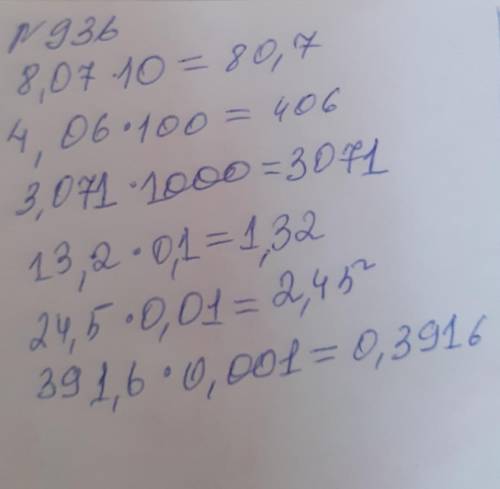 №936
8,07·10=80,7
4,06·100=406
3,071·1000=3071
13,2·0,1=1,32
24,5·0,01=2,45
391,6·0,001=0,3916